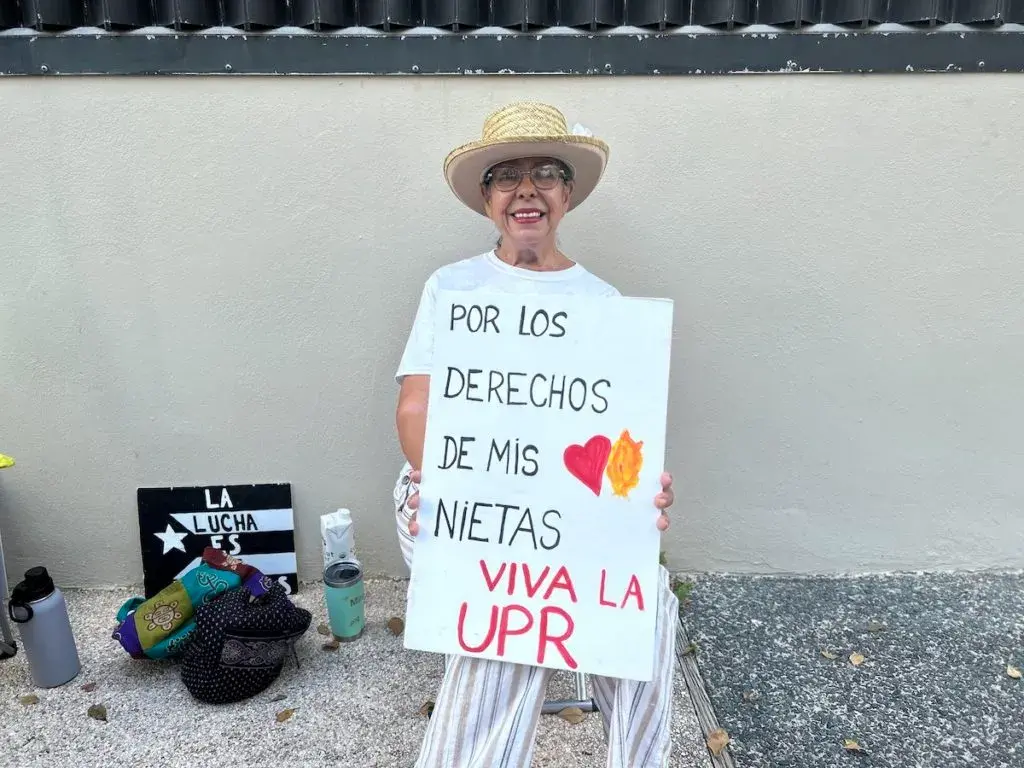 POR LOS
DERECHOS
DE MIS
NIETAS
VIVA LA
UPR
LA
LUCHA
ES